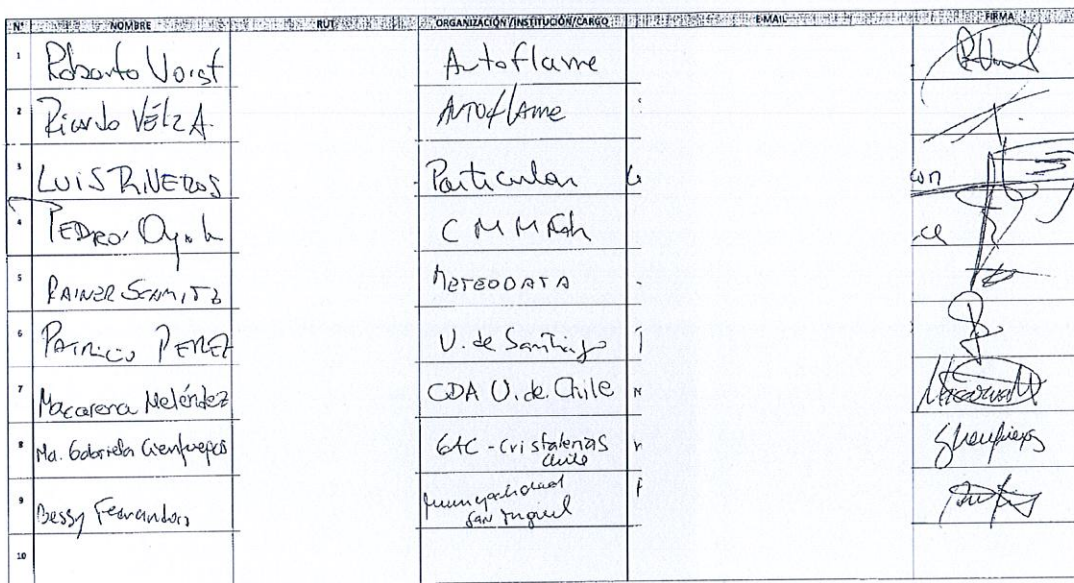 N° NOMBRE RUT ORGANIZACIÓN/INSTITUCIÓN/CARGO E-MAIL FIRMA
1 Roberto Autoflame
2 Ricardo VélizA. Autoflame
3 LUIS RIVEROS Particular
4 PEDRO C M M
5 RAINER SCHMITZ METEODATA
6 PATRICIO PEREZ U. de Santiago
7 Macarena Meléndez CDA U. de Chile
8 Ma. Gabriela Cienfuegos GAC - Cristalerías
Chile
9 Bessy Fernandois Municipalidad
San Miguel
10